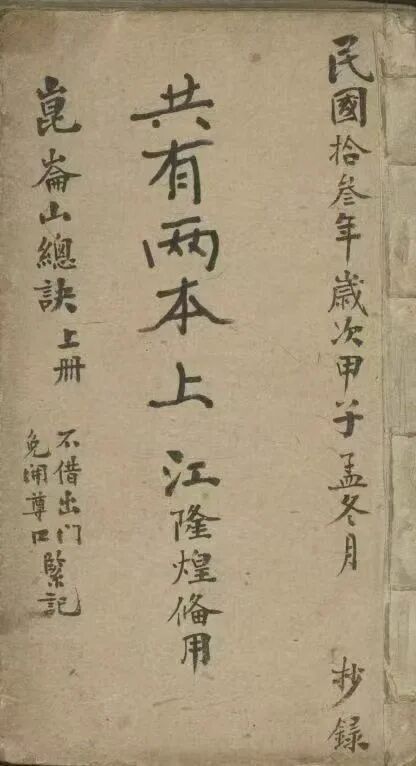 民國拾叁年嵗次甲子孟冬月 抄録
共有两本上 江隆煌俻用
崑崙山總訣上册
不借出門緊記
免開尊口